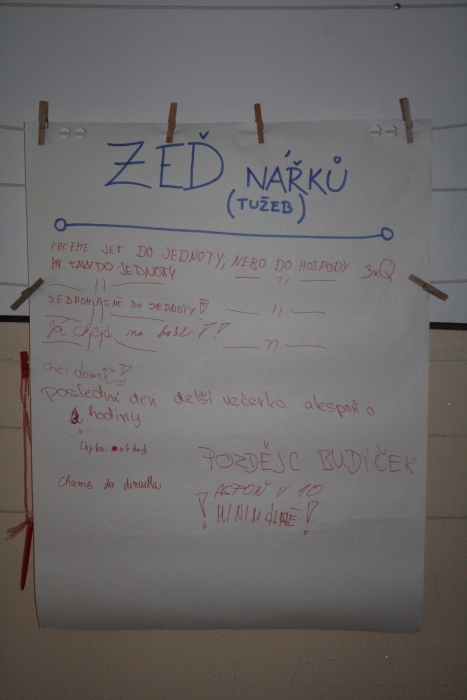 ZEĎ NÁŘKŮ
(TUŽEB)
CHCEME JET DO JEDNOTY, NEBO DO HOSPODY 3x
MY TAKY DO JEDNOTY — 11 —
— 11 —
JEDNOHLASNĚ DO JEDNOTY! — 11 —
Já chci na !! — 11 —
chci domů
poslední den delší večerka alespoň o
hodiny
chyba
POZDĚJC BUDÍČEK
chceme do divadla
ASPOŇ V 10
! MINIMÁLNĚ !